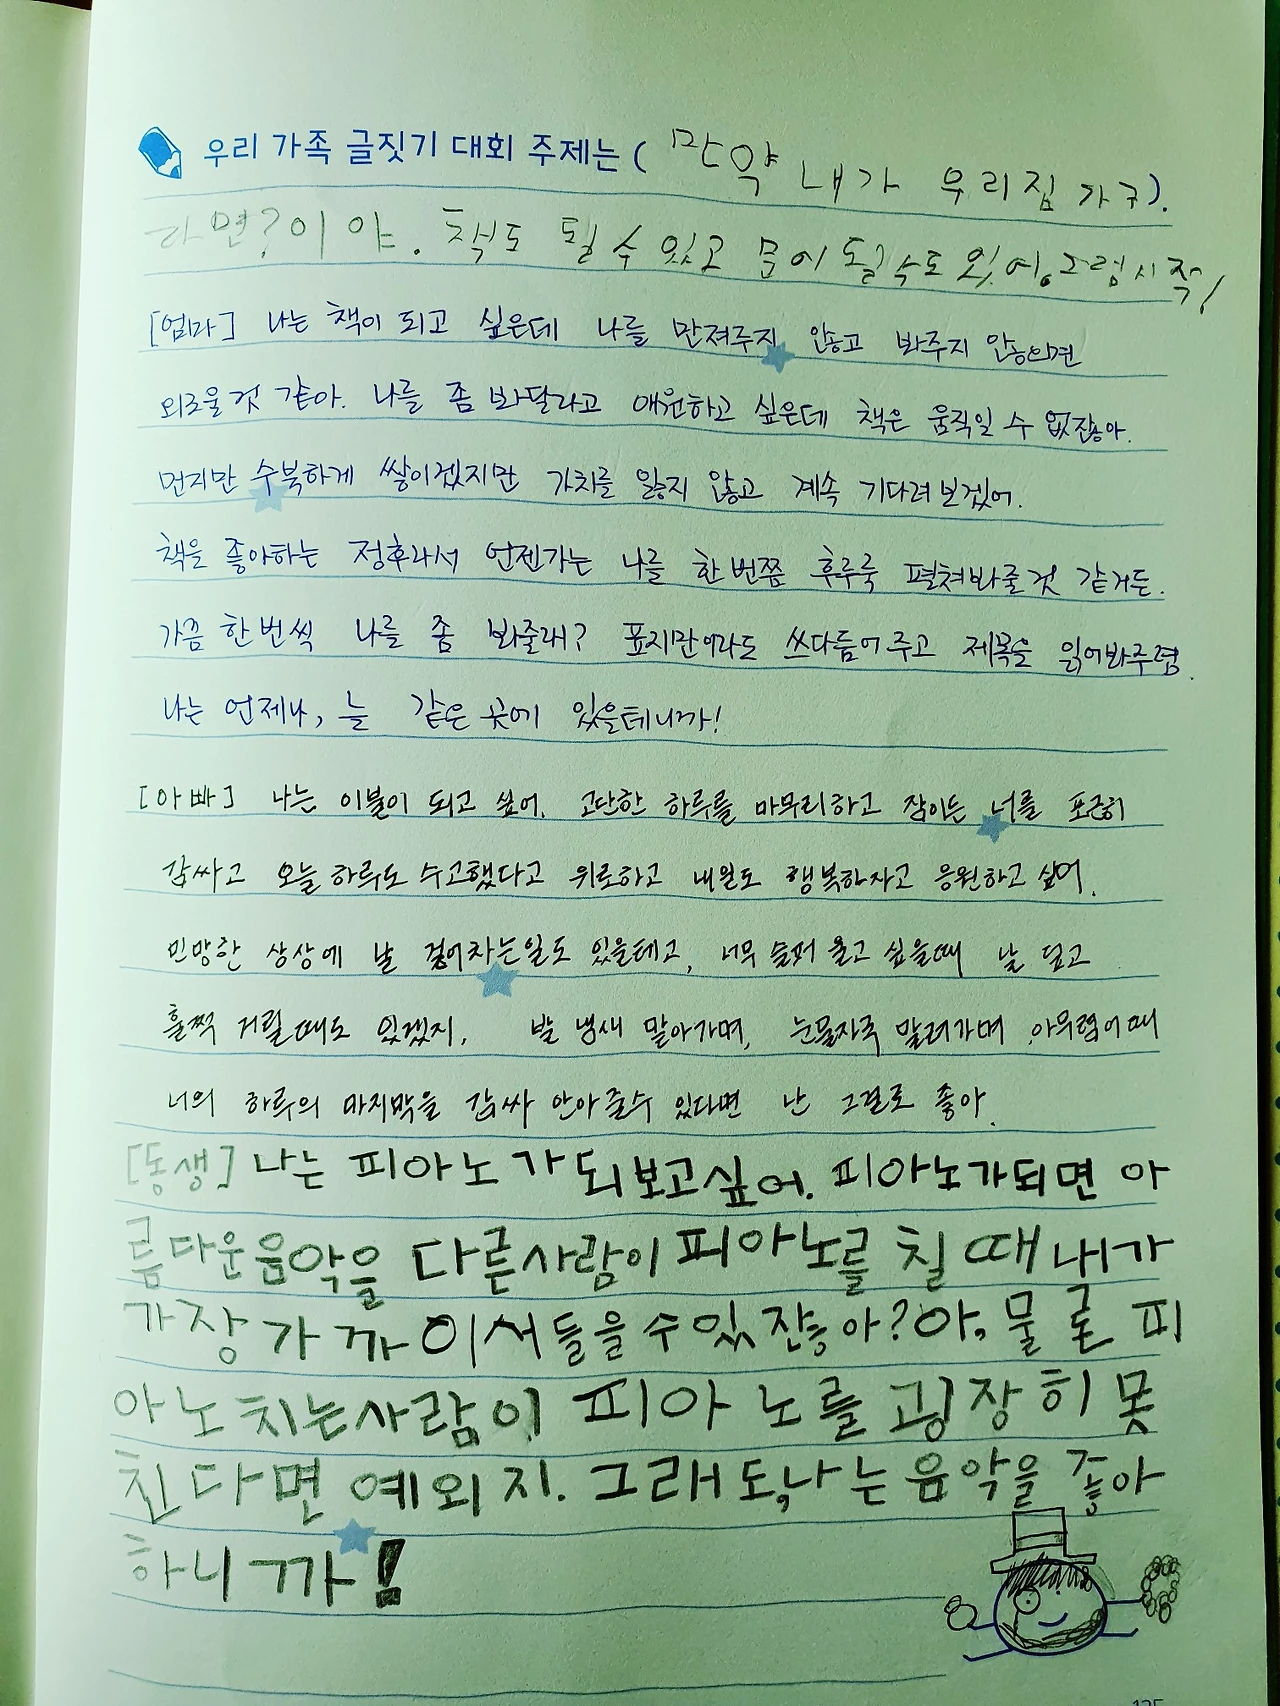 우리 가족 글짓기 대회 주제는 ( 만약 내가 우리집 가구).
라면?이야. 책도 될 수 있고 문이 될 수도 있어. 그럼 시작!
[엄마] 나는 책이 되고 싶은데 나를 만져주지 않고 봐주지 않으면
외로울 것 같아. 나를 좀 봐달라고 애원하고 싶은데 책은 움직일 수 없잖아.
먼지만 수북하게 쌓이겠지만 가치를 잃지 않고 계속 기다려보겠어.
책을 좋아하는 정후라서 언젠가는 나를 한 번쯤 후루룩 펼쳐봐줄것 같거든.
가끔 한번씩 나를 좀 봐줄래? 표지만이라도 쓰다듬어 주고 제목을 읽어봐주렴.
나는 언제나, 늘 같은 곳에 있을테니까!
[아빠] 나는 이불이 되고 싶어. 고단한 하루를 마무리하고 잠이든 너를 포근히
감싸고 오늘 하루도 수고했다고 위로하고 내일도 행복하자고 응원하고 싶어.
민망한 상상에 날 걷어차는일도 있을테고, 너무 슬퍼 울고 싶을때 날 덮고
훌쩍 거릴때도 있겠지. 발 냄새 맡아가며, 눈물자국 말려가며 아무렴 어때
너의 하루의 마지막을 감싸 안아 줄수 있다면 난 그걸로 좋아.
[동생] 나는 피아노가 되보고싶어. 피아노가되면 아
름다운음악을 다른사람이 피아노를 칠 때 내가
가장 가까이서들을 수 있잖아? 아, 물론 피
아노 치는사람이 피아노를 굉장히 못
친다면 예외지. 그래도, 나는 음악을 좋아
하니까!